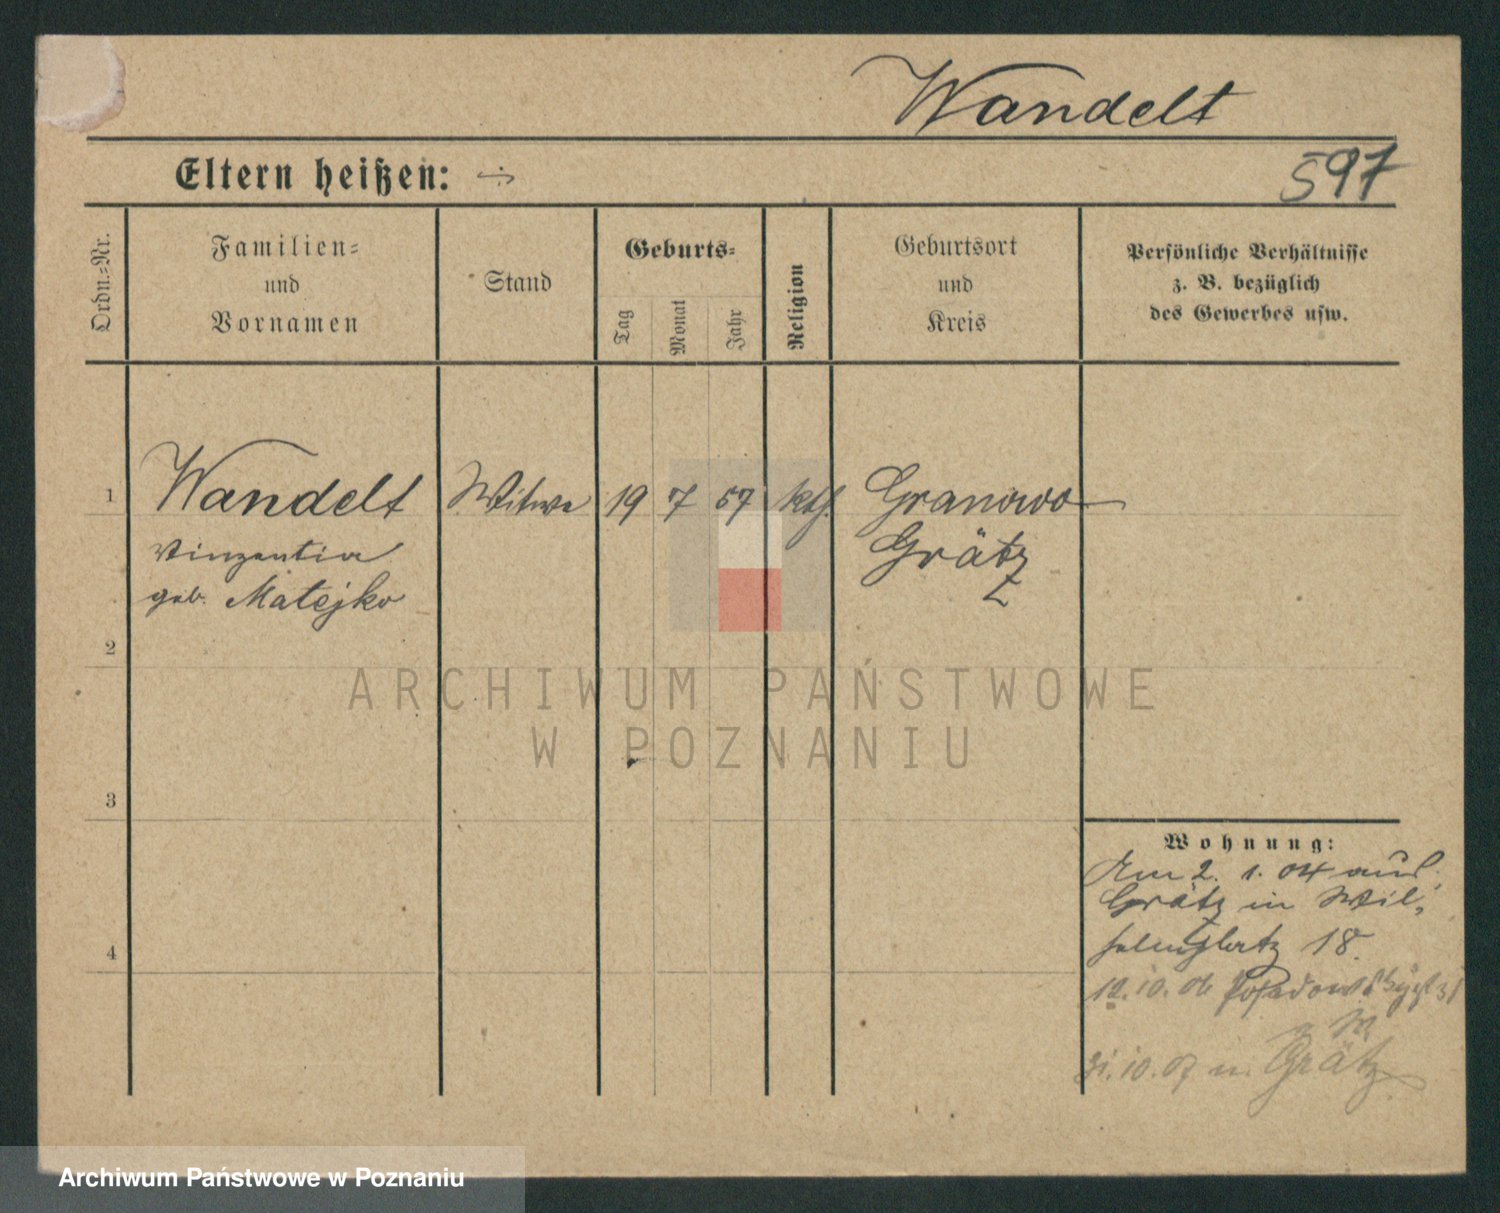 Wandelt
Eltern heißen:
597
Ordn.-Nr.
Familien-
und
Vornamen
Stand
Geburts-
Tag
Monat
Jahr
Religion
Geburtsort
und
Kreis
Persönliche Verhältnisse
z. B. bezüglich
des Gewerbes usw.
1
Wandelt
Vinzentia
geb. Matejko
Witwe
19
7
57
kth.
Granowo
Grätz
2
ARCHIWUM PAŃSTWOWE
W POZNANIU
3
4
Wohnung:
Am 2. 1. 04 aus
Grätz in Wil-
helmplatz 18
12. 10. 06
31. 10. 07 n. Grätz
Archiwum Państwowe w Poznaniu